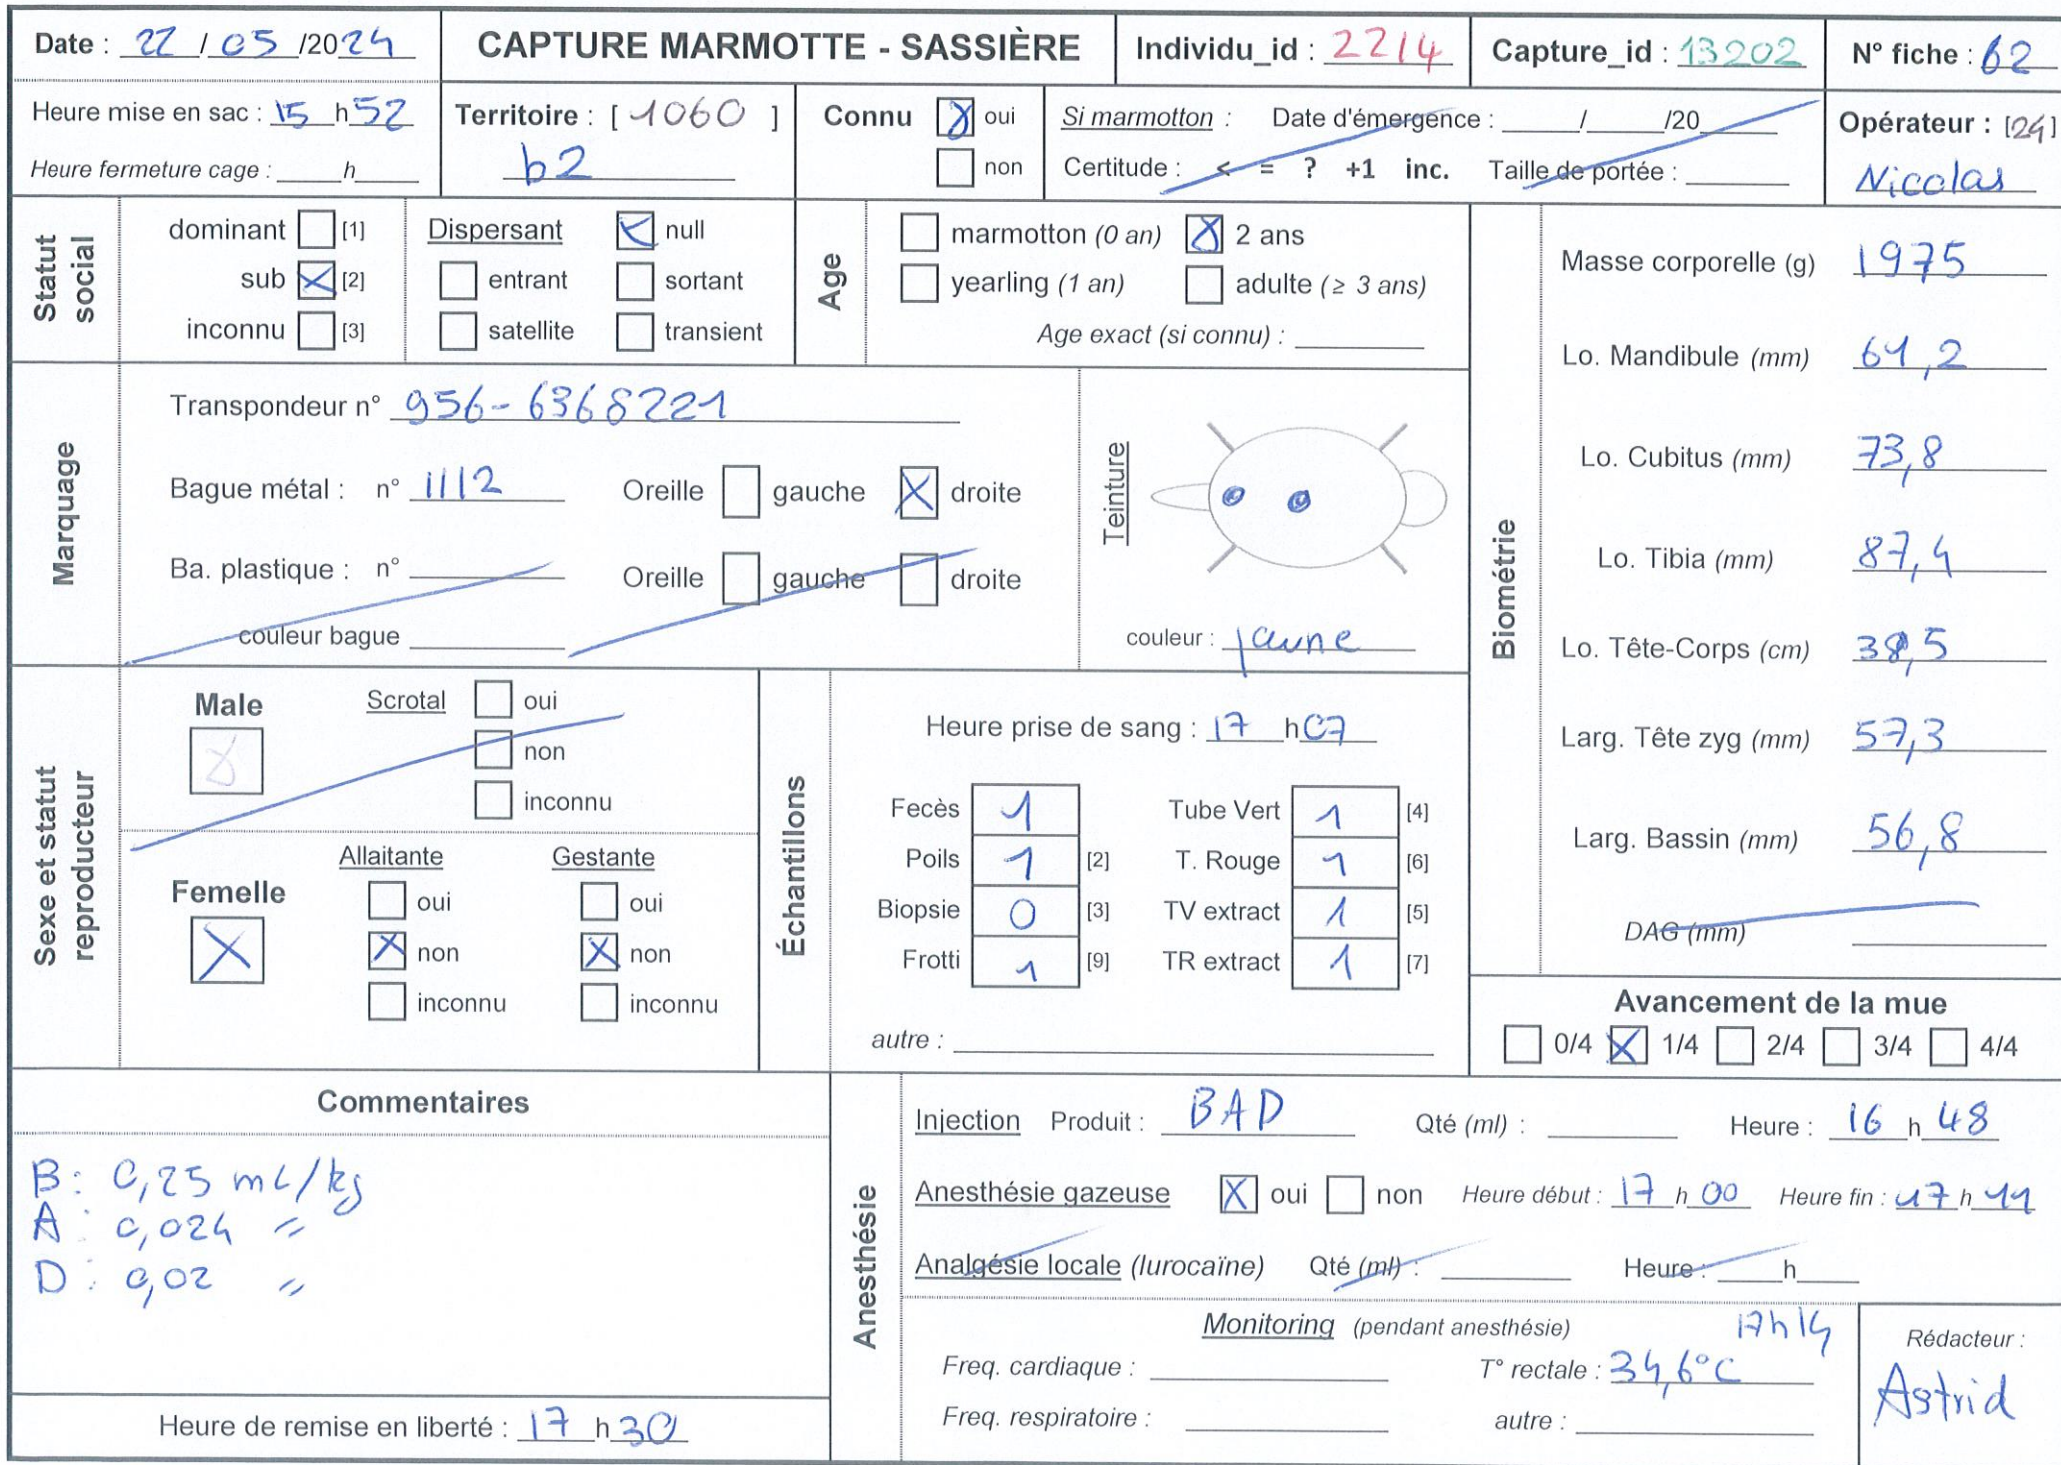 Date : 22 / 05 /2024
CAPTURE MARMOTTE - SASSIÈRE
Individu_id : 2214
Capture_id : 13202
N° fiche : 62
Heure mise en sac : 15 h 52
Heure fermeture cage : ____h____
Territoire : [ 1060 ]
b2
Connu oui
non
Si marmotton : Date d'émergence : ____/____/20____
Certitude : < = ? +1 inc. Taille de portée : ____
Opérateur : [24]
Nicolas
Statut social
dominant [1]
sub [2]
inconnu [3]
Dispersant null
entrant sortant
satellite transient
Age
marmotton (0 an) 2 ans
yearling (1 an) adulte (≥ 3 ans)
Age exact (si connu) : ____
Marquage
Transpondeur n° 956-6368221
Bague métal : n° 1112 Oreille gauche droite
Ba. plastique : n° ____ Oreille gauche droite
couleur bague ____
Teinture
couleur : jaune
Biométrie
Masse corporelle (g) 1975
Lo. Mandibule (mm) 61,2
Lo. Cubitus (mm) 73,8
Lo. Tibia (mm) 87,4
Lo. Tête-Corps (cm) 38,5
Larg. Tête zyg (mm) 57,3
Larg. Bassin (mm) 56,8
DAG (mm) ____
Sexe et statut reproducteur
Male Scrotal oui
non
inconnu
Femelle
Allaitante Gestante
oui oui
non non
inconnu inconnu
Échantillons
Heure prise de sang : 17 h 07
Fecès 1 Tube Vert 1 [4]
Poils 1 [2] T. Rouge 1 [6]
Biopsie 0 [3] TV extract 1 [5]
Frotti 1 [9] TR extract 1 [7]
autre : ____
Avancement de la mue
0/4 1/4 2/4 3/4 4/4
Commentaires
B : 0,25 mL/kg
A : 0,024 "
D : 0,02 "
Heure de remise en liberté : 17 h 30
Anesthésie
Injection Produit : BAD Qté (ml) : ____ Heure : 16 h 48
Anesthésie gazeuse oui non Heure début : 17 h 00 Heure fin : 17 h 11
Analgésie locale (lurocaïne) Qté (ml) : ____ Heure : ____h____
Monitoring (pendant anesthésie) 17h14
Freq. cardiaque : ____ T° rectale : 34,6°C
Freq. respiratoire : ____ autre : ____
Rédacteur :
Astrid